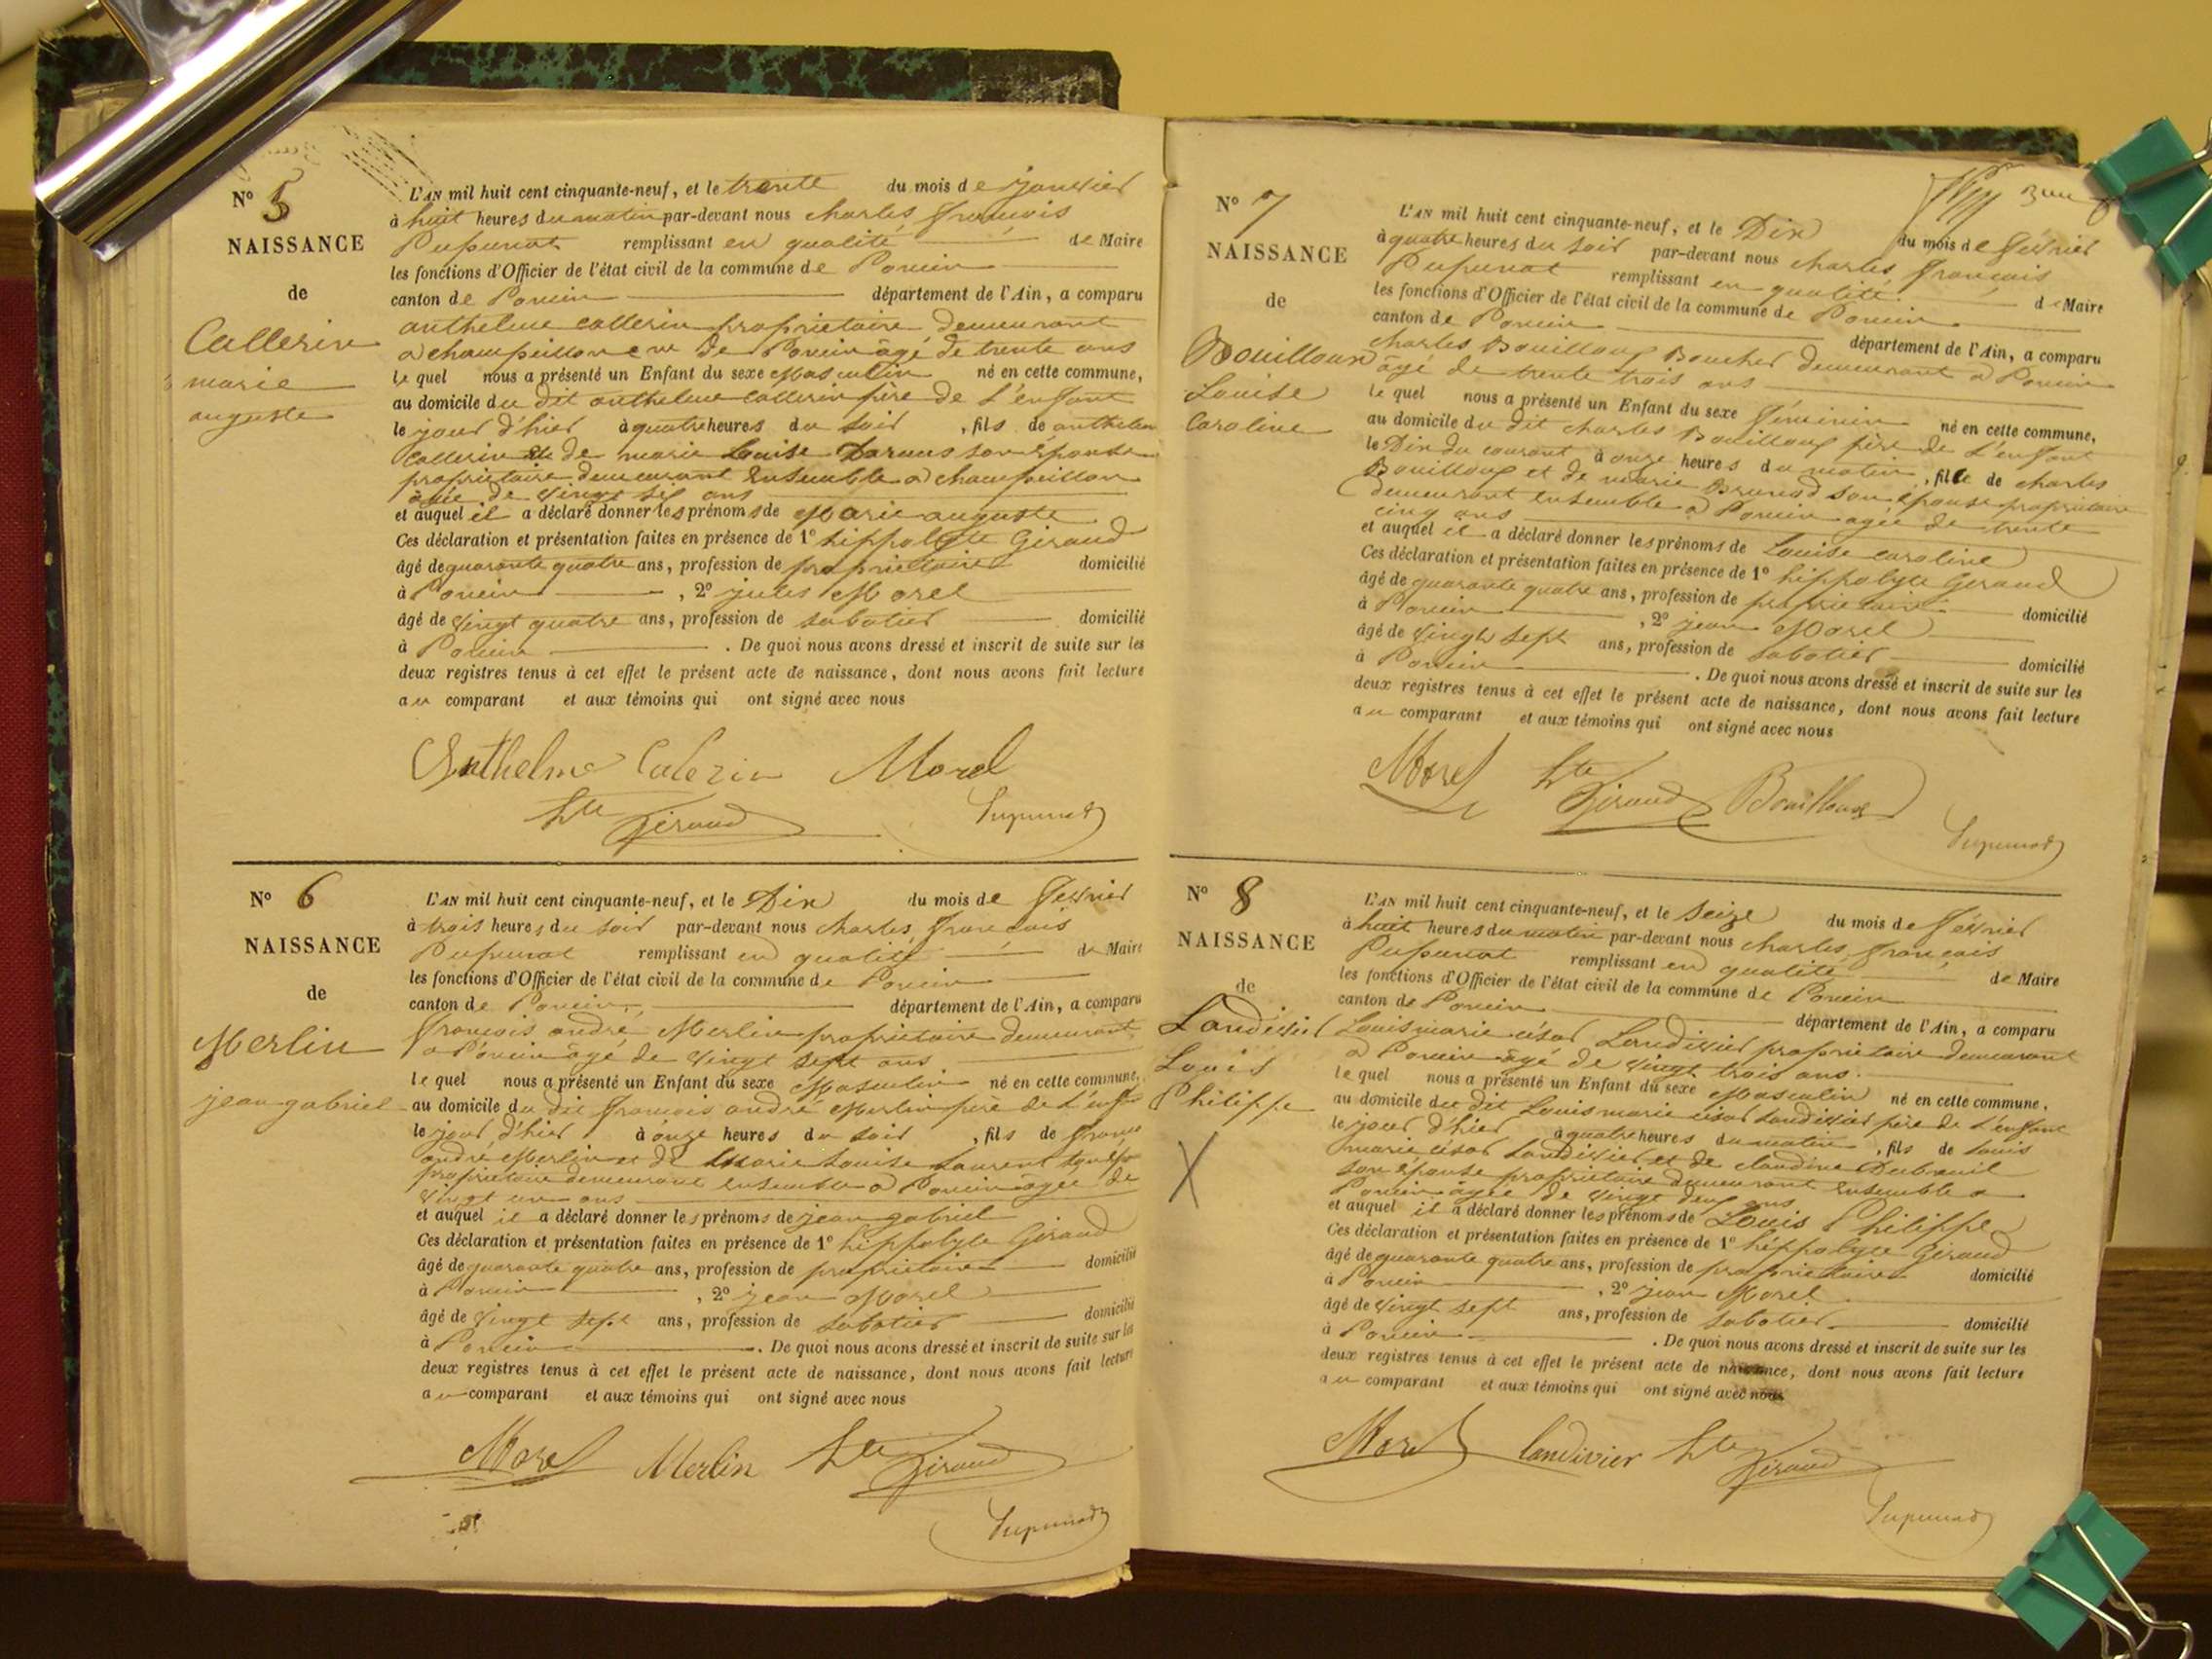 N° 5
NAISSANCE
de
Callerin
marie
auguste
L'AN mil huit cent cinquante-neuf, et le trente du mois de janvier
à huit heures du matin par-devant nous charles françois
Pupunat remplissant en qualité de Maire
les fonctions d'Officier de l'état civil de la commune de Poncin
canton de Poncin département de l'Ain, a comparu
anthelme callerin propriétaire demeurant
a champeillon de Poncin âgé de trente ans
le quel nous a présenté un Enfant du sexe Masculin né en cette commune,
au domicile du dit anthelme callerin père de l'enfant
le jour d'hier à quatre heures du soir, fils de anthelme
callerin et de marie Louise son épouse
propriétaire demeurant ensemble a champeillon
âgée de vingt six ans
et auquel il a déclaré donner les prénoms de Marie auguste
Ces déclaration et présentation faites en présence de 1° hippolyte Giraud
âgé de quarante quatre ans, profession de propriétaire domicilié
à Poncin, 2° jules Morel
âgé de vingt quatre ans, profession de sabotier domicilié
à Poncin. De quoi nous avons dressé et inscrit de suite sur les
deux registres tenus à cet effet le présent acte de naissance, dont nous avons fait lecture
au comparant et aux témoins qui ont signé avec nous
Anthelme Calerin Morel
Hte Giraud Pupunat
N° 6
NAISSANCE
de
Merlin
jean gabriel
L'AN mil huit cent cinquante-neuf, et le Dix du mois de Février
à trois heures du soir par-devant nous charles françois
Pupunat remplissant en qualité de Maire
les fonctions d'Officier de l'état civil de la commune de Poncin
canton de Poncin département de l'Ain, a comparu
françois andré Merlin propriétaire demeurant
a Poncin âgé de vingt sept ans
le quel nous a présenté un Enfant du sexe Masculin né en cette commune,
au domicile du dit françois andré Merlin père de l'enfant
le jour d'hier à onze heures du soir, fils de françois
andré Merlin et de Marie Louise Laurent son épse
propriétaire demeurant ensemble a Poncin âgée de
vingt un ans
et auquel il a déclaré donner les prénoms de jean gabriel
Ces déclaration et présentation faites en présence de 1° hippolyte Giraud
âgé de quarante quatre ans, profession de propriétaire domicilié
à Poncin, 2° jean Morel
âgé de vingt sept ans, profession de sabotier domicilié
à Poncin. De quoi nous avons dressé et inscrit de suite sur les
deux registres tenus à cet effet le présent acte de naissance, dont nous avons fait lecture
au comparant et aux témoins qui ont signé avec nous
Morel Merlin Hte Giraud
Pupunat
N° 7
NAISSANCE
de
Bouilloux
Louise
Caroline
L'AN mil huit cent cinquante-neuf, et le Dix du mois de Février
à quatre heures du soir par-devant nous charles françois
Pupunat remplissant en qualité de Maire
les fonctions d'Officier de l'état civil de la commune de Poncin
canton de Poncin département de l'Ain, a comparu
charles Bouilloux Boucher demeurant a Poncin
âgé de trente trois ans
le quel nous a présenté un Enfant du sexe féminin né en cette commune,
au domicile du dit charles Bouilloux père de l'enfant
le Dix du courant à onze heures du matin, fille de charles
Bouilloux et de marie Brunod son épouse propriétaire
demeurant ensemble a Poncin agée de trente
cinq ans
et auquel il a déclaré donner les prénoms de Louise caroline
Ces déclaration et présentation faites en présence de 1° hippolyte Giraud
âgé de quarante quatre ans, profession de propriétaire domicilié
à Poncin, 2° jean Morel
âgé de vingt sept ans, profession de sabotier domicilié
à Poncin. De quoi nous avons dressé et inscrit de suite sur les
deux registres tenus à cet effet le présent acte de naissance, dont nous avons fait lecture
au comparant et aux témoins qui ont signé avec nous
Morel Hte Giraud Bouilloux
Pupunat
N° 8
NAISSANCE
de
Landivier
Louis
Philippe
L'AN mil huit cent cinquante-neuf, et le Seize du mois de Février
à huit heures du matin par-devant nous charles françois
Pupunat remplissant en qualité de Maire
les fonctions d'Officier de l'état civil de la commune de Poncin
canton de Poncin département de l'Ain, a comparu
Louis marie césar Landivier propriétaire demeurant
a Poncin âgé de vingt trois ans.
le quel nous a présenté un Enfant du sexe Masculin né en cette commune,
au domicile du dit Louis marie césar Landivier père de l'enfant
le jour d'hier à quatre heures du matin, fils de Louis
marie césar Landivier et de claudine Dubreuil
son épouse propriétaire demeurant ensemble a
Poncin âgée de vingt deux ans
et auquel il a déclaré donner les prénoms de Louis Philippe
Ces déclaration et présentation faites en présence de 1° hippolyte Giraud
âgé de quarante quatre ans, profession de propriétaire domicilié
à Poncin, 2° jean Morel
âgé de vingt sept ans, profession de sabotier domicilié
à Poncin. De quoi nous avons dressé et inscrit de suite sur les
deux registres tenus à cet effet le présent acte de naissance, dont nous avons fait lecture
au comparant et aux témoins qui ont signé avec nous
Morel Landivier Hte Giraud
Pupunat